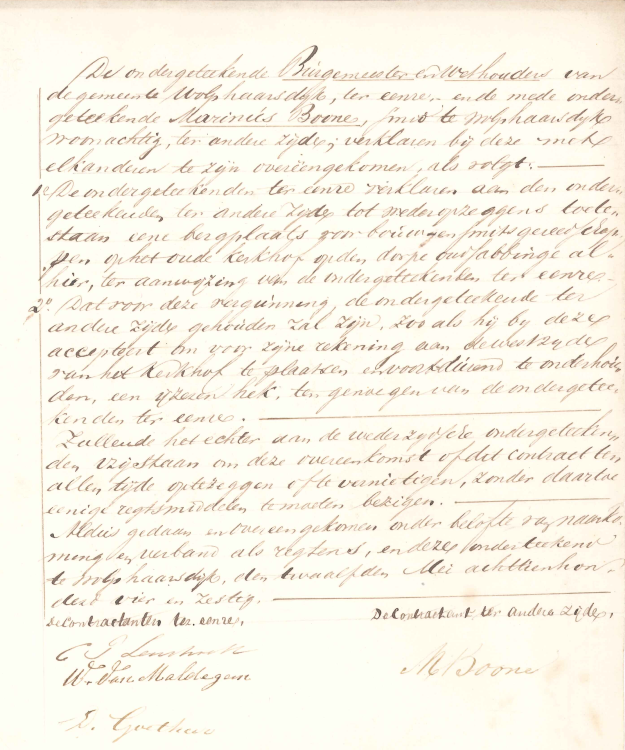 De ondergeteekende Burgemeester en Wethouders van
de gemeente Wolphaarsdijk, ter eenre, en de mede onder„
geteekende Marinus Boone, smit te Wolphaarsdijk
woonachtig, ter andere zijde; verklaren bij deze met
elkanderen te zijn overeengekomen, als volgt.
1e De ondergeteekenden ter eenre verklaren aan den onder„
geteekenden ter andere zijde tot wederopzeggens toete
staan eene bergplaats voor
op het oude Kerkhof op den dorpe oud sabbinge al„
hier, ter aanwijzing van de ondergeteekenden ter eenre.
2e. Dat voor deze vergunning de ondergeteekende ter
andere zijde gehouden zal zijn, zoo als hij bij deze
accepteert om voor zijne rekening aan de westzijde
van het Kerkhof te plaatsen en voortdurend te onderhou
den, een ijzeren hek, ten genoegen van de ondergetee„
kenden ter eenre.
Zullende het echter aan de wederzijdsche ondergeteeken„
den vrijstaan om deze overeenkomst of dit contract ten
allen tijde optezeggen of te vernietigen, zonder daartoe
eenige regtsmiddelen te moeten bezigen.
Aldus gedaan en overeengekomen onder belofte van nako„
ming en verband als regtens, en deze onderteekend
te Wolphaarsdijk, den twaalfden Mei achttienhon„
derd vier en zestig.
De Contractanten ter eenre.
De Contractant ter andere zijde.
W. Van Maldegem
M Boone